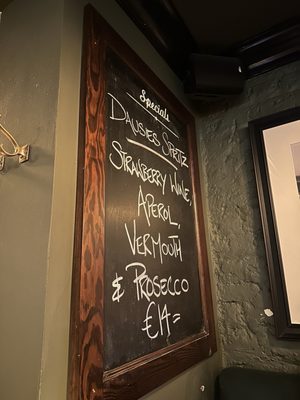 Specials
DAUSIES SPRITZ
STRAWBERRY WINE,
APEROL,
VERMOUTH
& PROSECCO
€14=